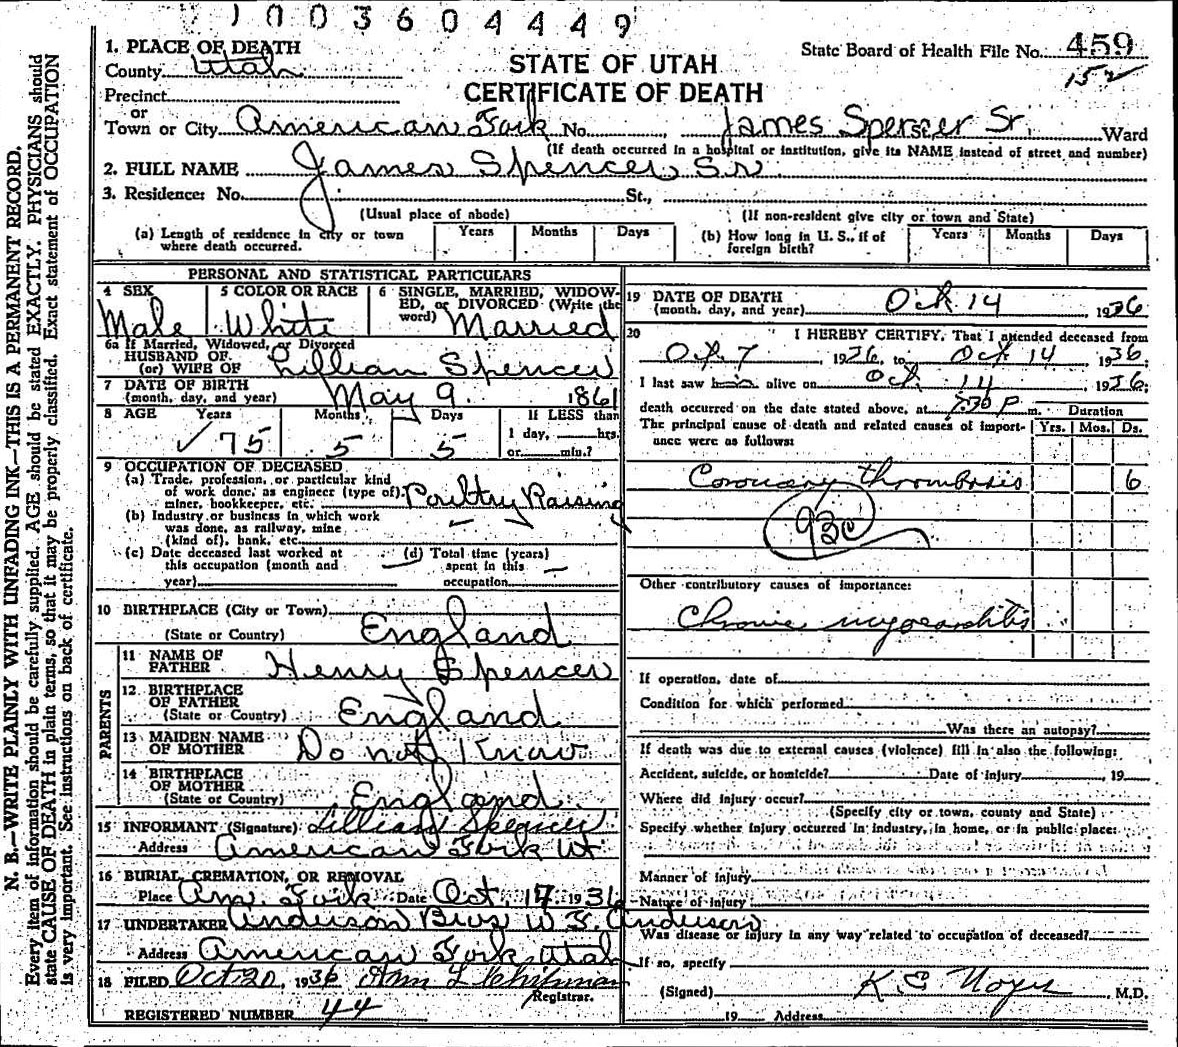 1003604449
1. PLACE OF DEATH
County Utah
STATE OF UTAH
CERTIFICATE OF DEATH
State Board of Health File No. 459
152
Precinct
or
Town or City American Fork No. , James Spencer Sr. Ward
(If death occurred in a hospital or institution, give its NAME instead of street and number)
2. FULL NAME James Spencer Sr.
3. Residence: No. St.,
(Usual place of abode) (If non-resident give city or town and State)
(a) Length of residence in city or town where death occurred. Years Months Days
(b) How long in U. S., if of foreign birth? Years Months Days
PERSONAL AND STATISTICAL PARTICULARS
4 SEX Male
5 COLOR OR RACE White
6 SINGLE, MARRIED, WIDOWED, or DIVORCED (Write the word) Married
6a If Married, Widowed, or Divorced
HUSBAND OF
(or) WIFE OF Lillian Spencer
7 DATE OF BIRTH
(month, day, and year) May 9. 1861
8 AGE Years Months Days If LESS than
75 5 5 1 day, hrs.
or min.?
9 OCCUPATION OF DECEASED
(a) Trade, profession, or particular kind of work done, as engineer (type of), miner, bookkeeper, etc. Poultry Raising
(b) Industry or business in which work was done, as railway, mine (kind of), bank, etc.
(c) Date deceased last worked at this occupation (month and year)
(d) Total time (years) spent in this occupation
10 BIRTHPLACE (City or Town)
(State or Country) England
PARENTS
11 NAME OF FATHER Henry Spencer
12 BIRTHPLACE OF FATHER
(State or Country) England
13 MAIDEN NAME OF MOTHER Do not Know
14 BIRTHPLACE OF MOTHER
(State or Country) England
15 INFORMANT (Signature) Lillian Spencer
Address American Fork Ut
16 BURIAL, CREMATION, OR REMOVAL
Place Am. Fork Date Oct 17 1936
17 UNDERTAKER Anderson Bros W. F. Anderson
Address American Fork, Utah
18 FILED Oct 20, 1936 Ann L Chipman
Registrar.
REGISTERED NUMBER 44
19 DATE OF DEATH
(month, day, and year) Oct 14 1936
20 I HEREBY CERTIFY, That I attended deceased from
Oct. 7, 1936, to Oct 14 1936,
I last saw alive on Oct 14 1936;
death occurred on the date stated above, at 7:30 P m. Duration
The principal cause of death and related causes of importance were as follows: Yrs. Mos. Ds.
Coronary thrombosis 6
93c
Other contributory causes of importance:
Chronic myocarditis
If operation, date of
Condition for which performed
Was there an autopsy?
If death was due to external causes (violence) fill in also the following:
Accident, suicide, or homicide? Date of injury , 19
Where did injury occur?
(Specify city or town, county and State)
Specify whether injury occurred in industry, in home, or in public place:
Manner of injury
Nature of injury
Was disease or injury in any way related to occupation of deceased?
If so, specify
(Signed) K E Noyes , M.D.
19 Address
N. B.—WRITE PLAINLY WITH UNFADING INK—THIS IS A PERMANENT RECORD.
Every item of information should be carefully supplied. AGE should be stated EXACTLY. PHYSICIANS should
state CAUSE OF DEATH in plain terms, so that it may be properly classified. Exact statement of OCCUPATION
is very important. See instructions on back of certificate.